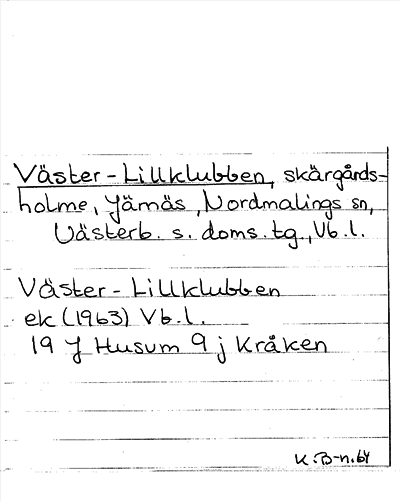 Väster-Lillklubben, skärgårds-
holme, Järnäs, Nordmalings sn,
Västerb. s. doms.tg., Vb.l.
Väster-Lillklubben
ek (1963) Vb.l.
19 J Husum 9 j Kråken
K.B-n.64